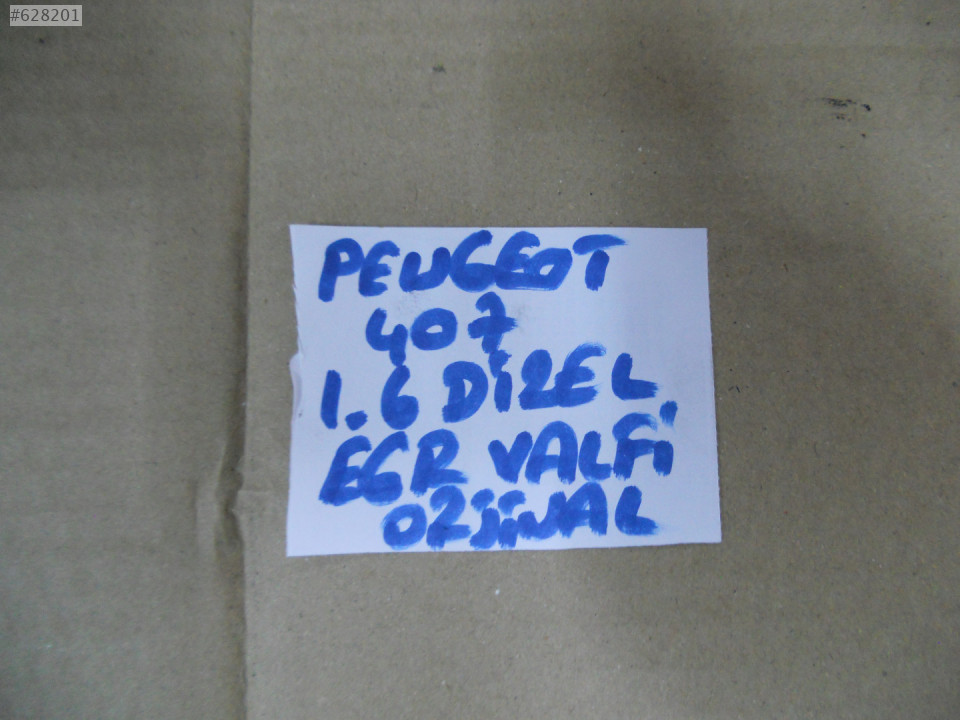 #628201
PEUGEOT
407
1.6 DİZEL
EGR VALFİ
ORJİNAL